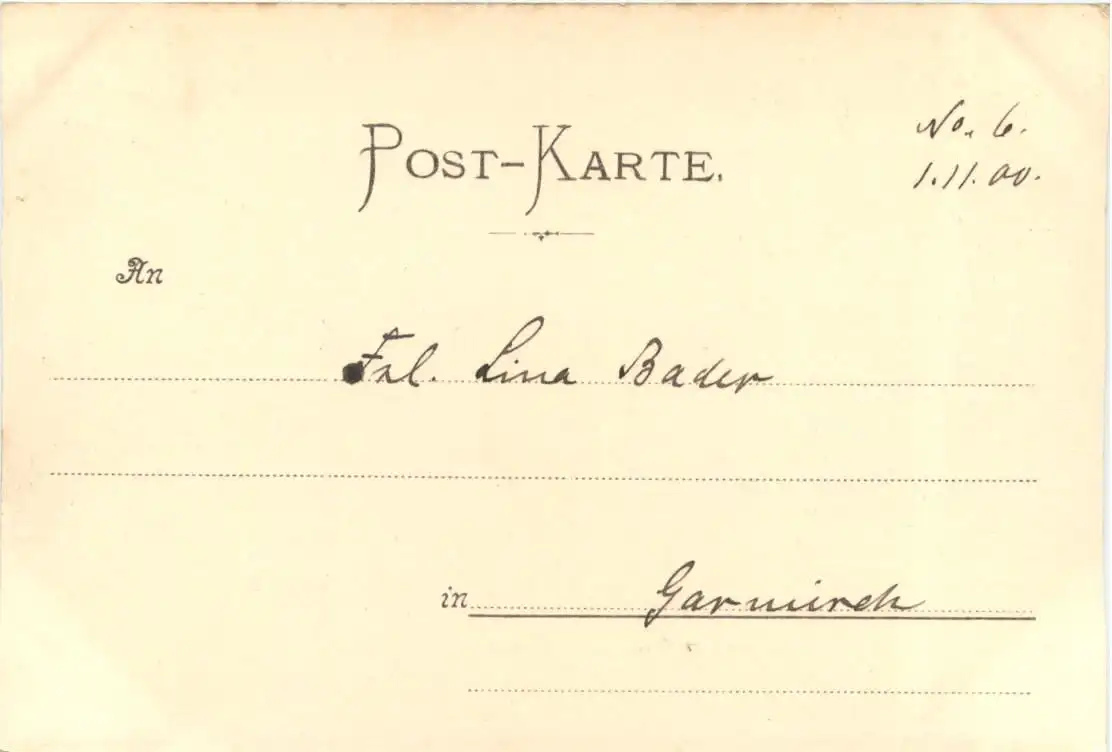 POST-KARTE.
No. 6.
1.11.00.
An
Frl. Lina Bader
in Garmisch